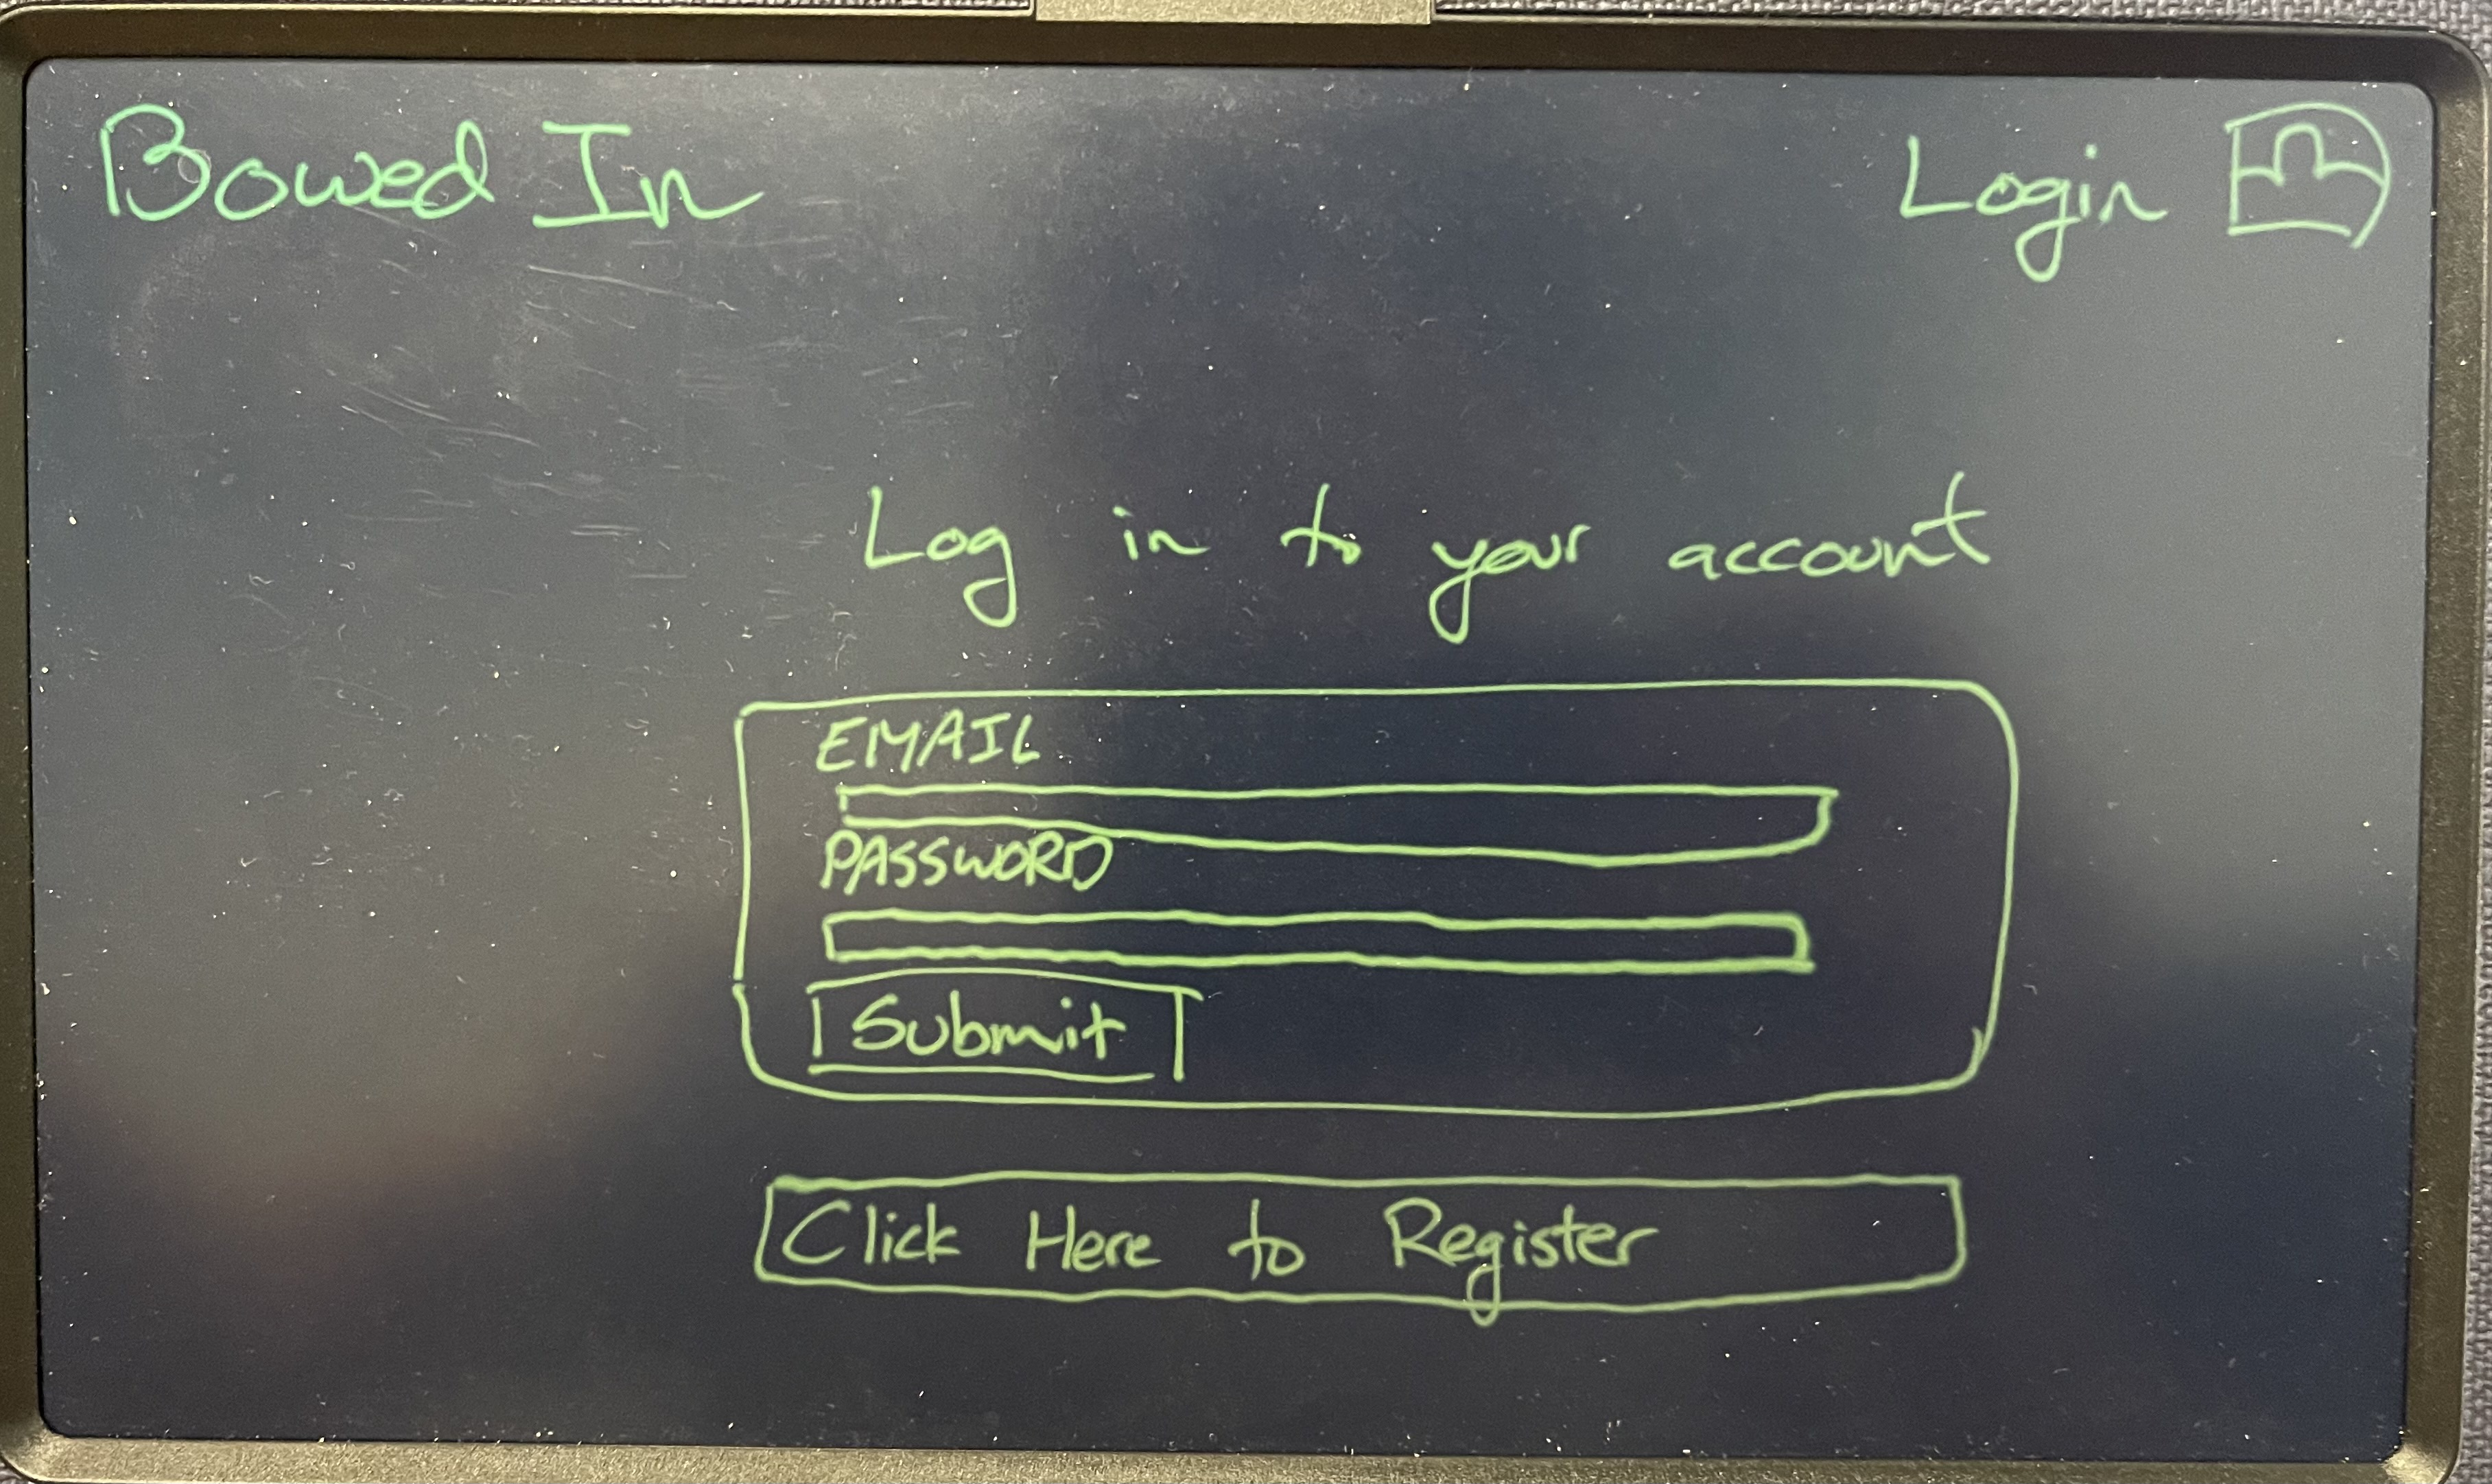 Bowed In
Login
Log in to your account
EMAIL
PASSWORD
Submit
Click Here to Register